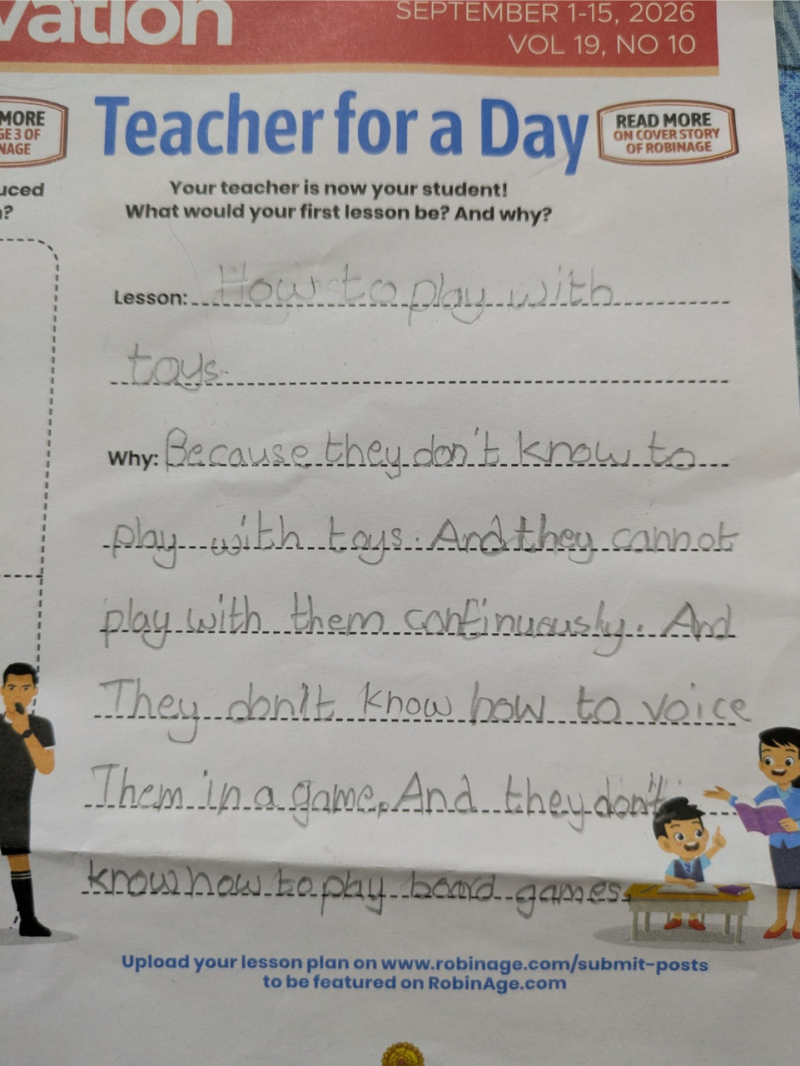 vation
SEPTEMBER 1-15, 2026
VOL 19, NO 10
MORE
GE 3 OF
NAGE
Teacher for a Day
READ MORE
ON COVER STORY
OF ROBINAGE
uced
?
Your teacher is now your student!
What would your first lesson be? And why?
Lesson: How to play with
toys.
Why: Because they don't know to
play with toys. And they cannot
play with them continuously. And
They don't know how to voice
Them in a game. And they don't
know how to play board games.
Upload your lesson plan on www.robinage.com/submit-posts
to be featured on RobinAge.com